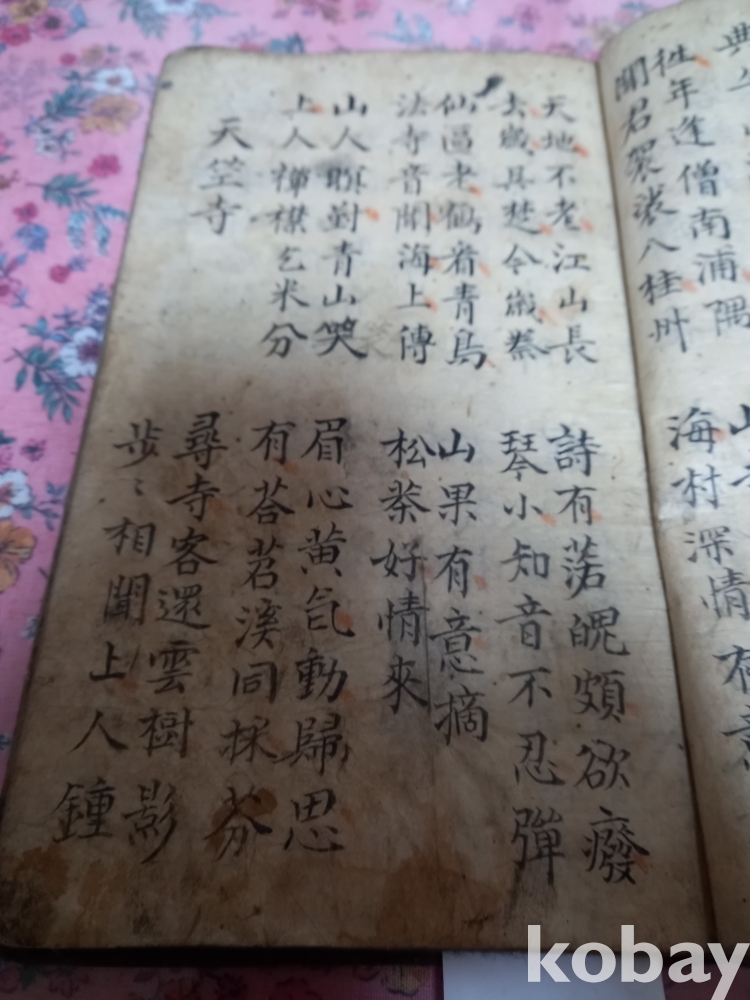 典
往年逢僧南浦隅
聞君袈裟八桂州
山
海村深情有意
天地不老江山長
去歲具楚今歲蔡
仙區老鶴看青鳥
法寺音聞海上傳
山人瞑對青山笑
上人禪榻乞米分
天竺寺
詩有落魄頗欲廢
琴小知音不忍彈
山果有意摘
松茶好情來
眉心黄气動歸思
有荅苕溪同採芬
尋寺客還雲樹影
步〻相聞上人鍾
kobay